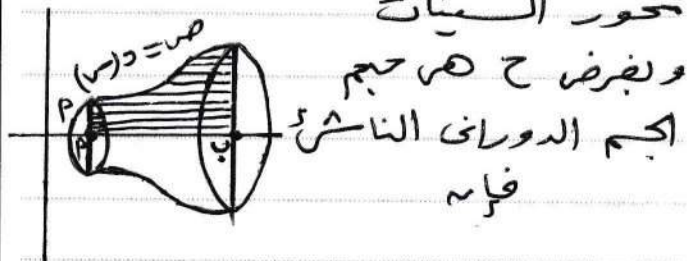 محور السينات
ص = د(س)
وبفرض ح هى حجم
الجسم الدورانى الناشئ
فإنه
ب